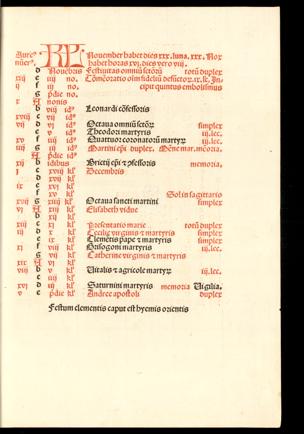 Aure⁹ nuer⁹. KL Nouember habet dies xxx. luna. xxx. Nox
habet horas xvj. dies vero viij.
d Nouēbris Festiuitas omniū sctōrū totū duplex
xiij e iiij no. Cōmēoratio oīm fideliū defūctorū. ix. lc. In
ij f iij no. cipit quintus embolismus
g pͥdie no.
x A nonis
b viij idꝰ Leonardi cōfessoris
xviij c vij idꝰ
vij d vj idꝰ Octaua omniū sctōrū simplex
e v idꝰ Theodori martyris iij. lec.
xv f iiij idꝰ Quattuor coronatorum martyꝝ iij. lec.
iiij g iij idꝰ Martini epi duplex. Mēne mar. mēoria.
A pͥdie idꝰ
xij b idibus Brictij epi et cōfessoris memoria.
j c xviij kl Decembris
d xvij kl
ix e xvj kl
f xv kl Sol in sagittario
xvij g xiiij kl Octaua sancti martini simplex
vj A xiij kl Elisabeth vidue
b xij kl
xiiij c xj kl Presentatio marie totū duplex
iij d x kl Cecilie virginis et martyris simplex
e ix kl Clemētis pape et martyris simplex
xj f viij kl Grisogoni martyris iij. lec.
g vij kl Catherine virginis et martyris
xix A vj kl
viij b v kl Vitalis et agricole martyꝝ iij. lec.
c iiij kl
xvj d iij kl Saturnini martyris memoria Vigilia.
v e pͥdie kl Andree apostoli duplex
Festum clementis caput est hyemis orientis